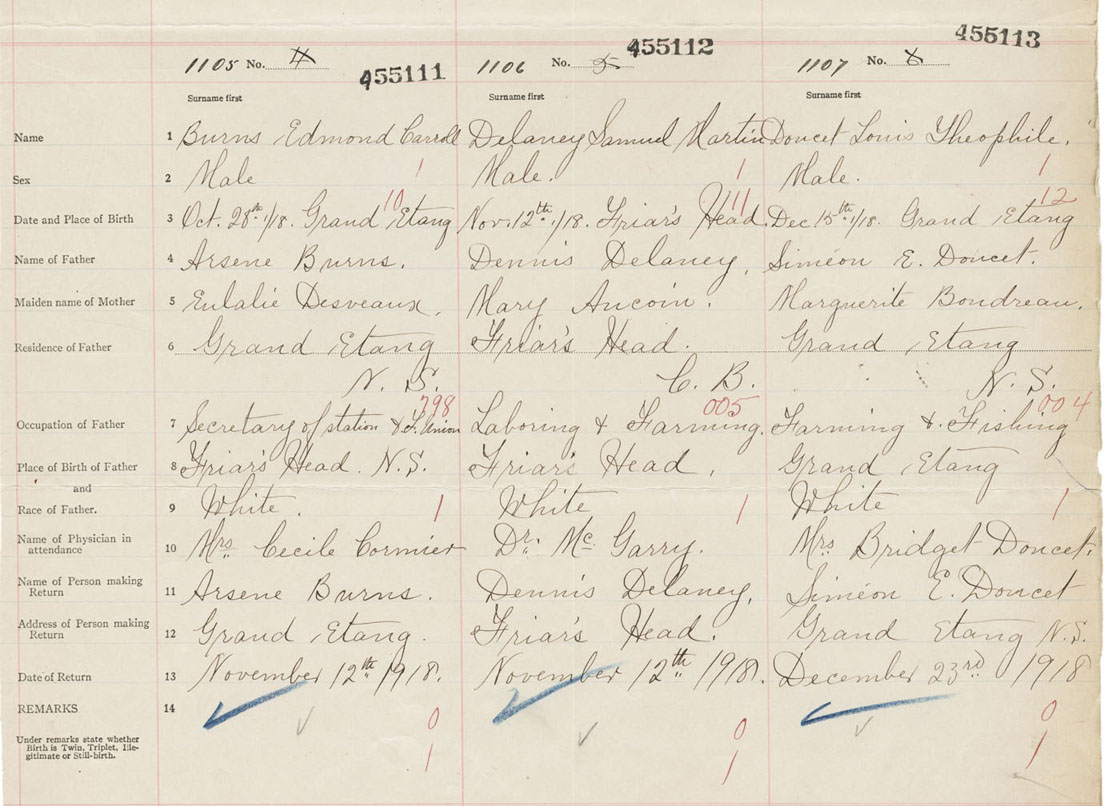 1105 No. 4 455111 1106 No. 5 455112 1107 No. 6 455113
Surname first Surname first Surname first
Name 1 Burns Edmond Carroll Delaney Samuel Martin Doucet Louis Theophile.
Sex 2 Male 1 Male. 1 Male. 1
10 11 12
Date and Place of Birth 3 Oct. 28th 1/18. Grand Etang Nov. 12th 1/18. Friar's Head. Dec 15th 1/18. Grand Etang
Name of Father 4 Arsene Burns. Dennis Delaney, Siméon E. Doucet.
Maiden name of Mother 5 Eulalie Desveaux, Mary Aucoin. Marguerite Boudreau.
Residence of Father 6 Grand Etang Friar's Head. Grand Etang
N. S. C. B. N. S.
298 005 004
Occupation of Father 7 Secretary of station & F. Union Laboring & Farming. Farming & Fishing
Place of Birth of Father 8 Friar's Head. N.S. Friar's Head, Grand Etang
and
Race of Father. 9 White. 1 White 1 White 1
Name of Physician in
attendance 10 Mrs. Cecile Cormier Dr. Mc Garry. Mrs Bridget Doucet.
Name of Person making
Return 11 Arsene Burns. Dennis Delaney, Siméon E. Doucet
Address of Person making
Return 12 Grand Etang. Friar's Head. Grand Etang N.S.
Date of Return 13 November 12th 1918. November 12th 1918. December 23rd 1918
REMARKS 14
0 0 0
Under remarks state whether
Birth is Twin, Triplet, Ille-
gitimate or Still-birth. 1 1 1